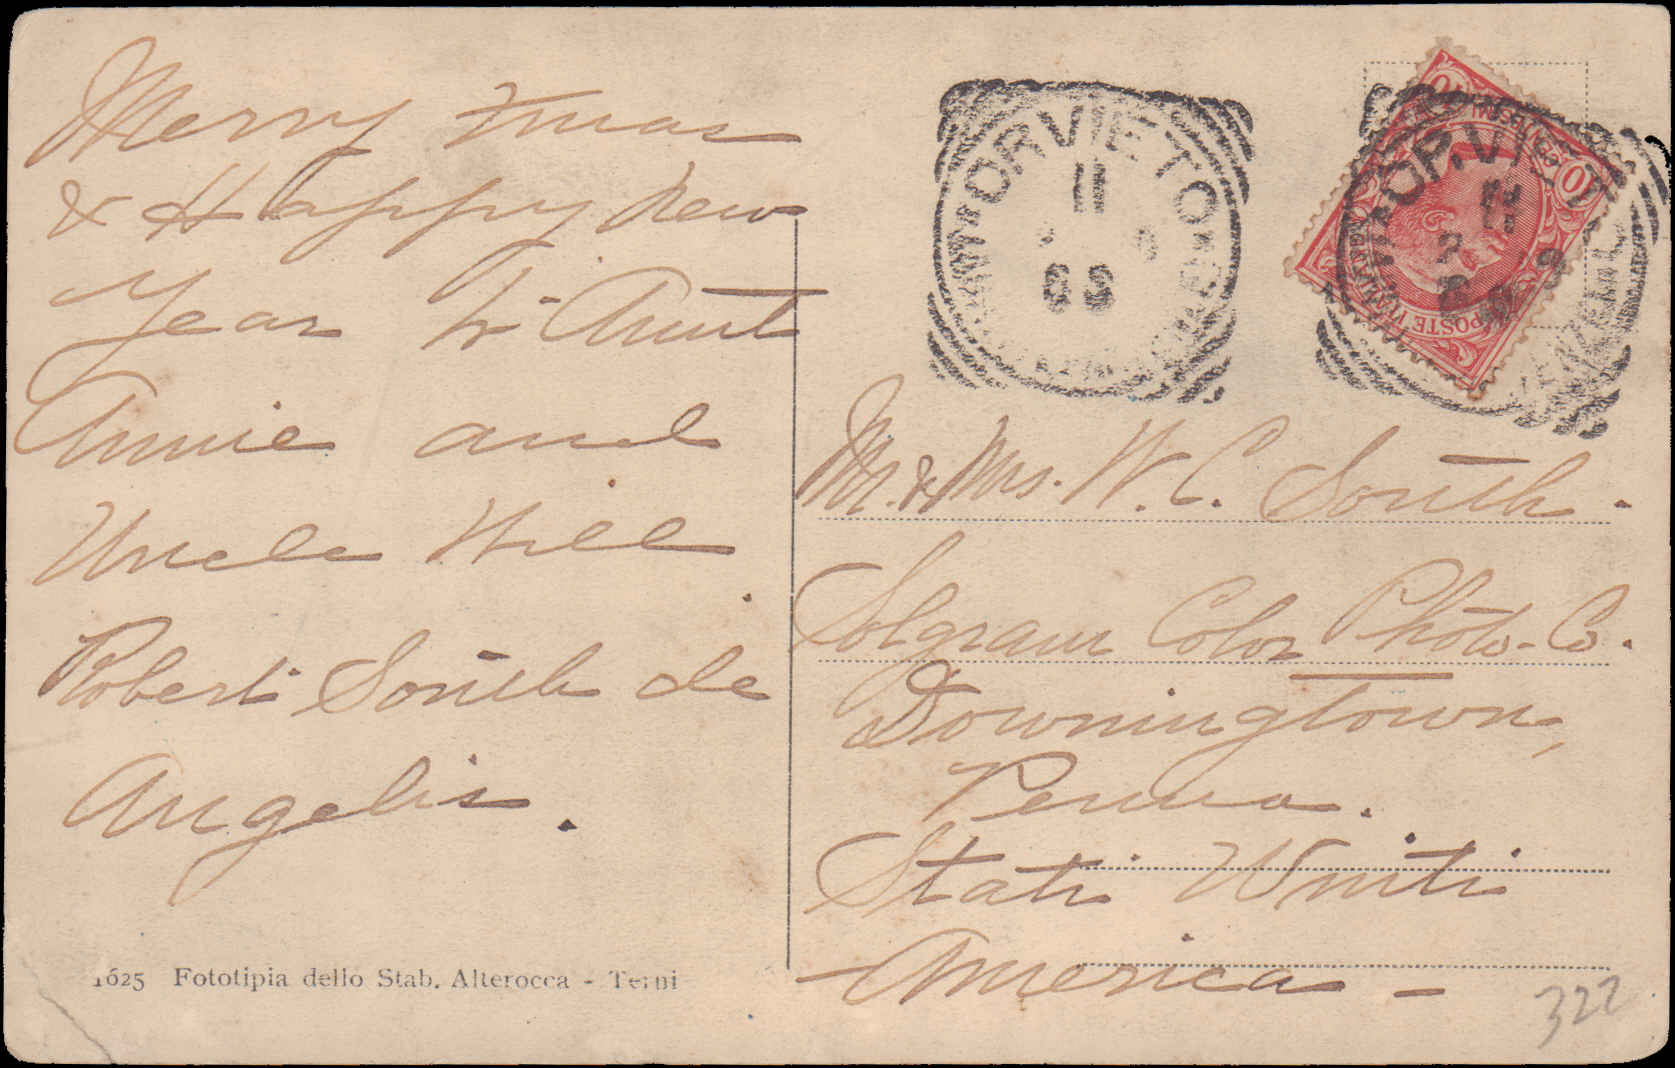 Merry Xmas
& Happy New
Year to Aunt
Annie and
Uncle Will
Robert South de
Angelis.
1625 Fototipia dello Stab. Alterocca - Terni
ORVIETO
11
ORVI
10
POSTE
Mr. & Mrs. W. C. South.
Solgram Color Photo. Co.
Downingtown,
Penna.
Stati Uniti
America -
322